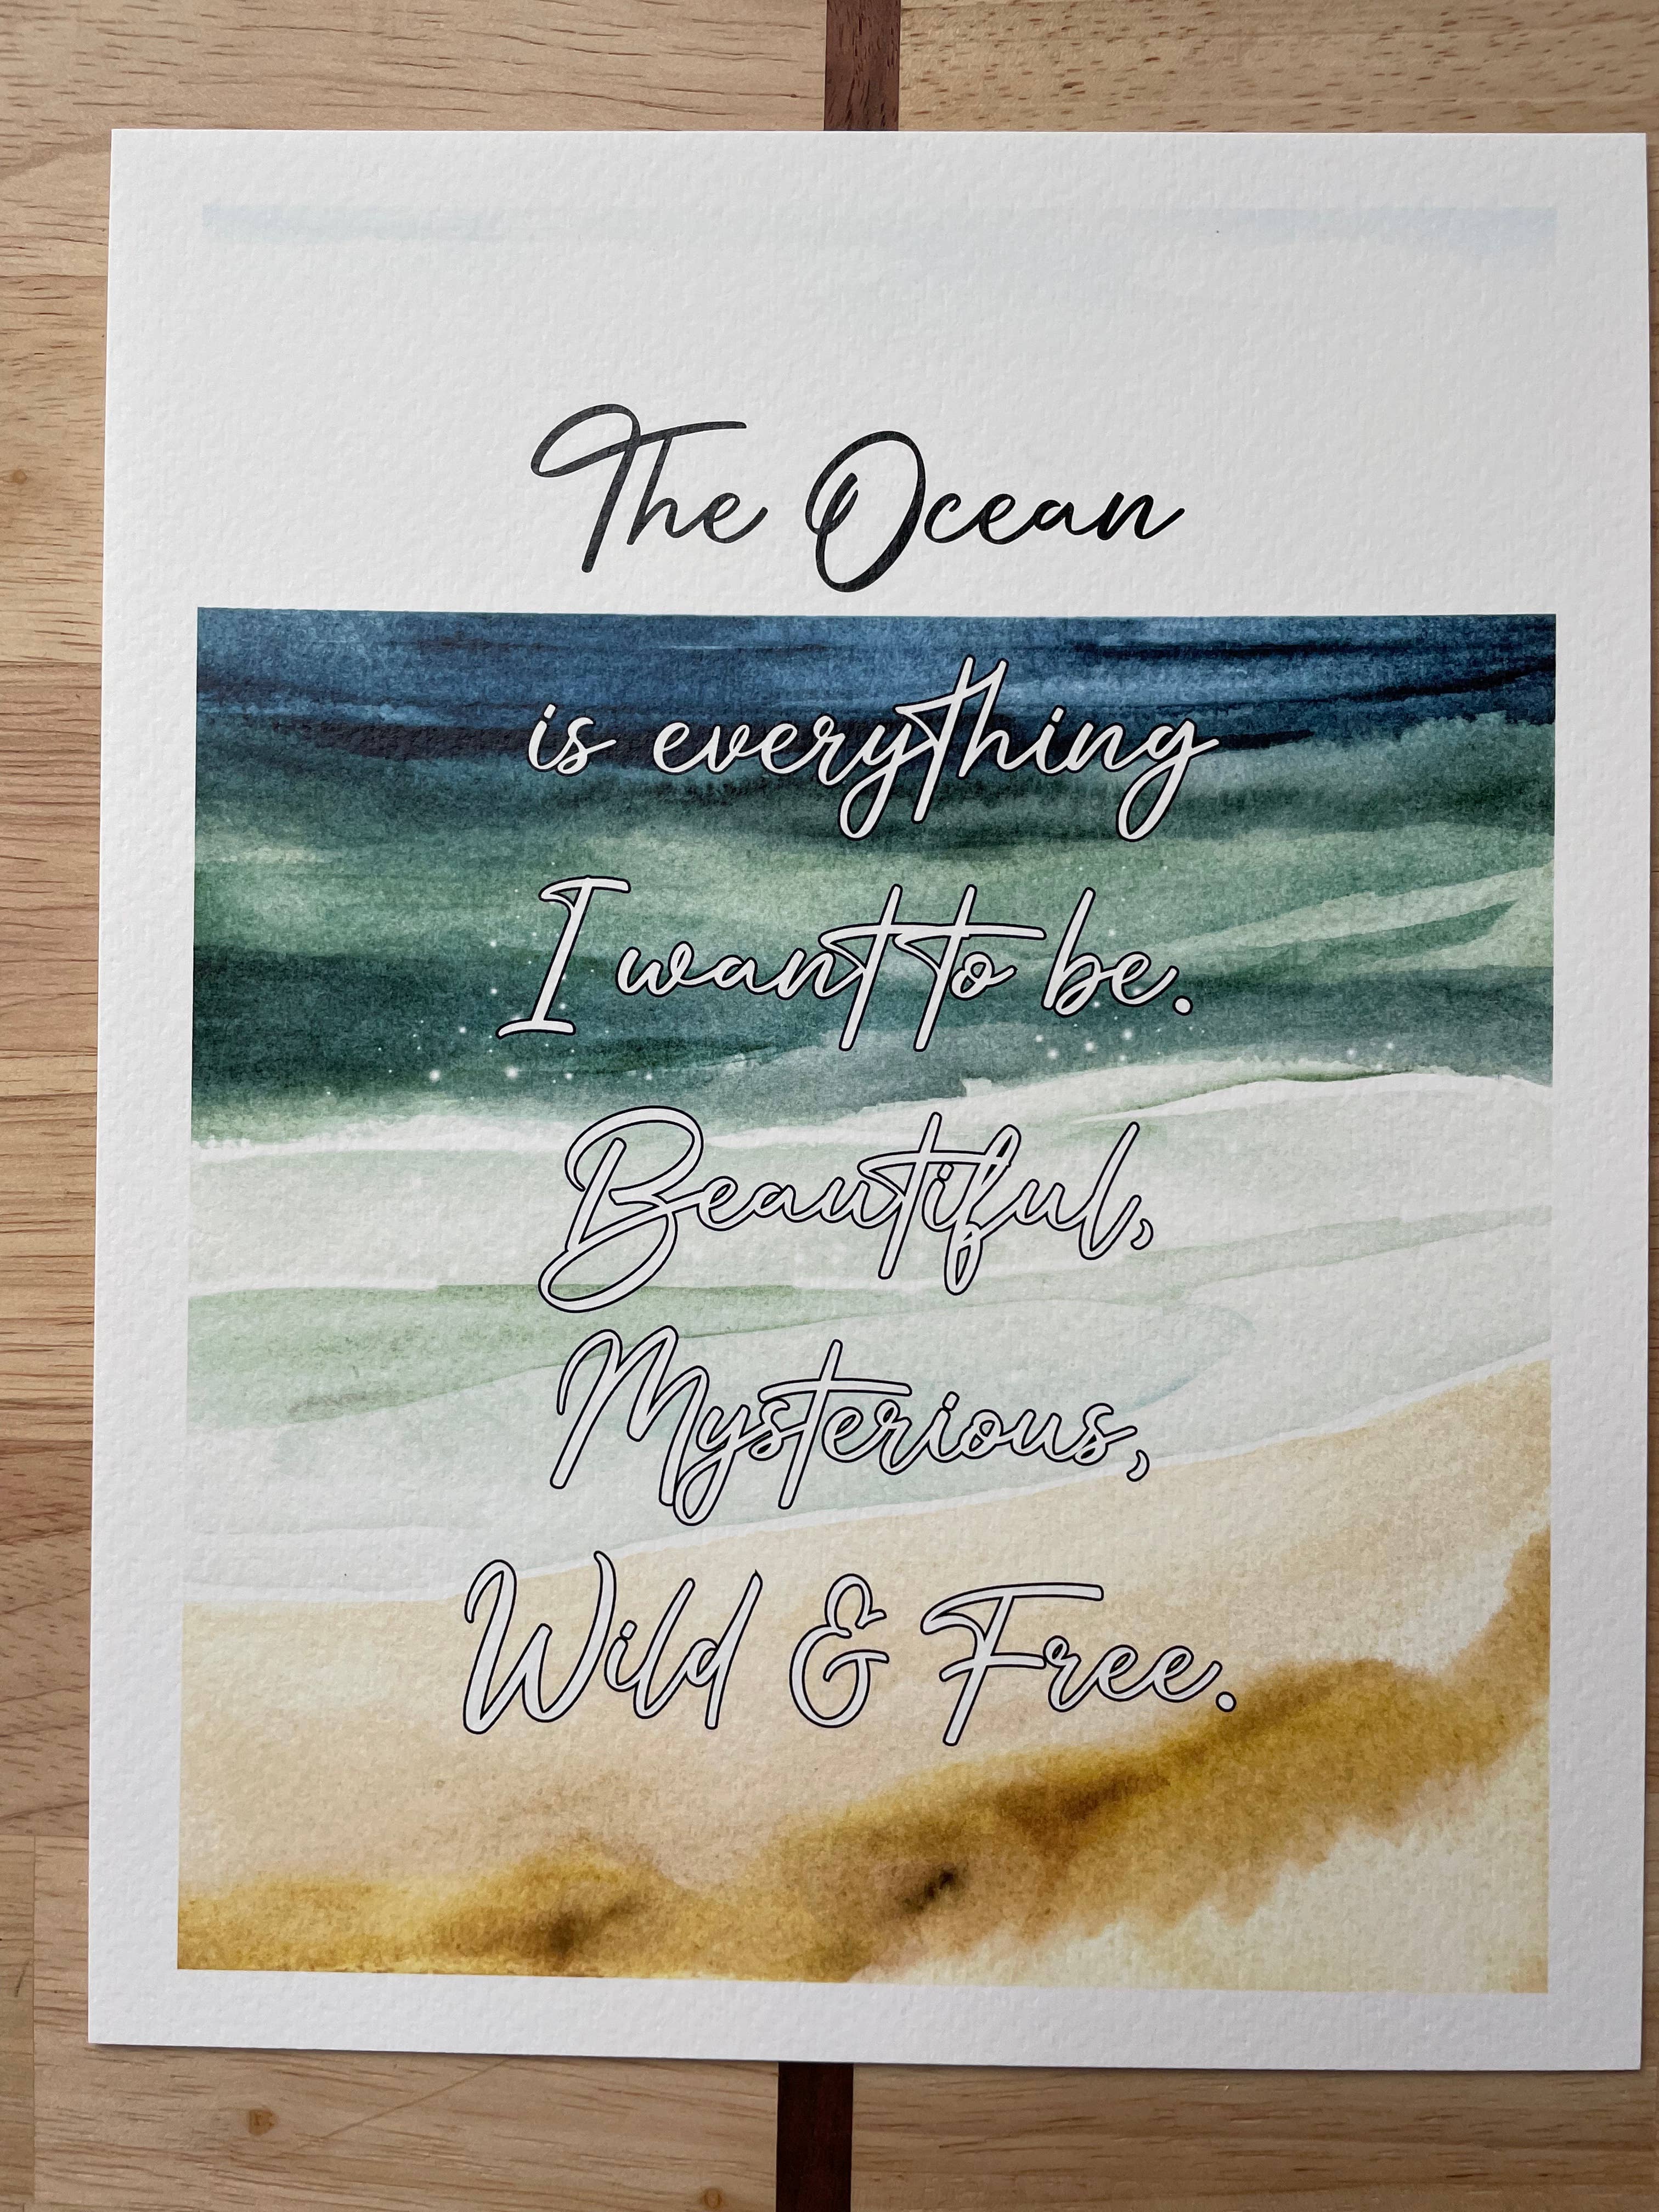 The Ocean
is everything
I want to be.
Beautiful,
Mysterious,
Wild & Free.